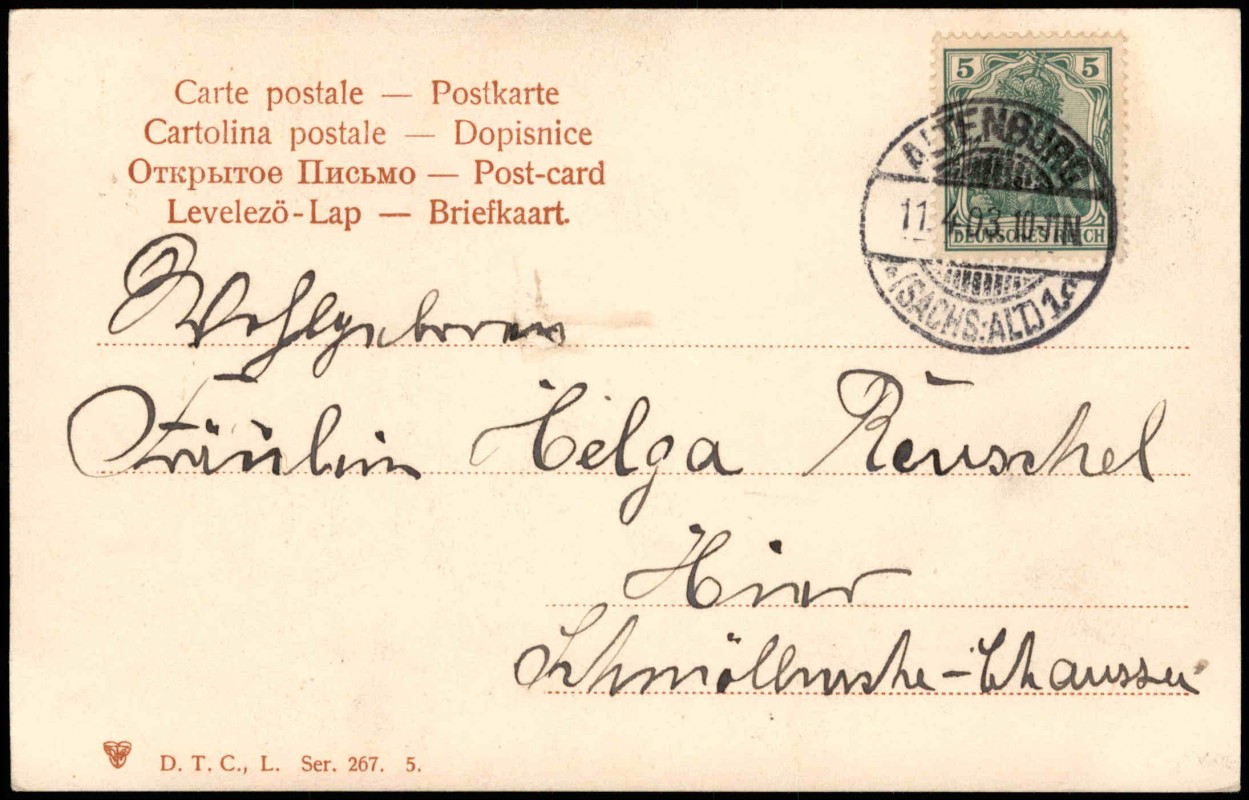 Carte postale — Postkarte
Cartolina postale — Dopisnice
Открытое Письмо — Post-card
Levelezö-Lap — Briefkaart.
5 5
DEUTSCHES REICH
ALTENBURG
11.4.03. 10-11N
* (SACHS:ALT) 1.c
Wohlgeboren
Fräulein Helga Reuschel
Hier
Schmöllnsche-Chaussee
D. T. C., L. Ser. 267. 5.